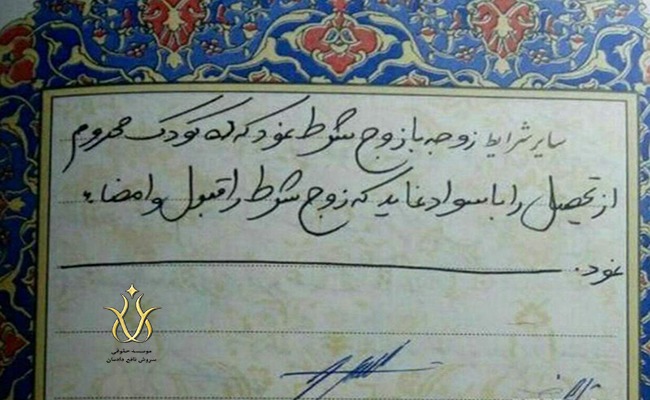 سایر شرایط زوجه با زوج شرط نمود که ده کودک محروم
از تحصیل را باسواد نماید که زوج شرط را قبول و امضاء
نمود.
موسسه حقوقی
سروش نافع دادسان